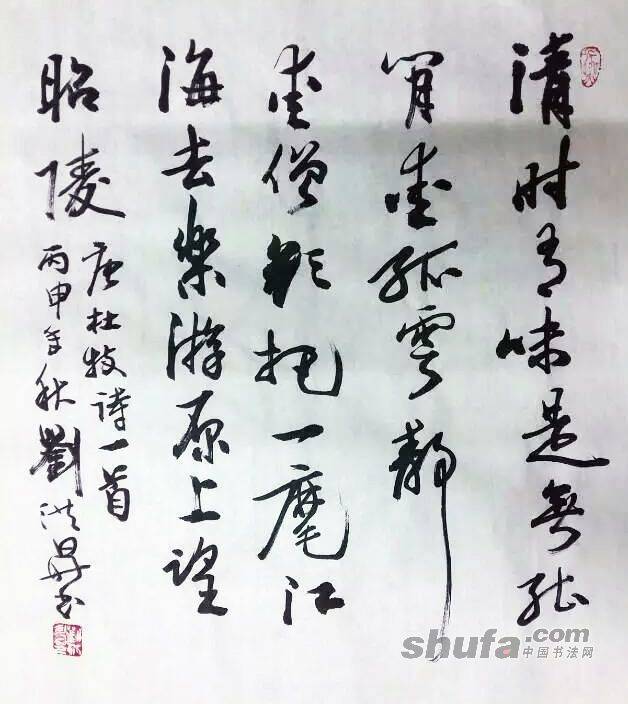 清时有味是無能
閒愛孤雲靜
愛僧欲把一麾江
海去樂游原上望
昭陵
唐杜牧诗一首
丙申年秋劉洪昇书
shufa.com
中国书法网